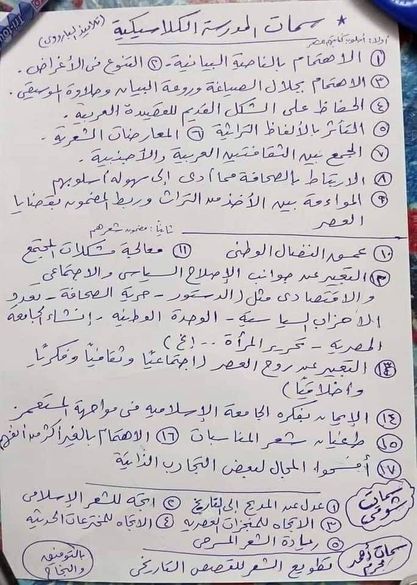 * سمات المدرسة الكلاسيكية (تلاميذ البارودي)
أولا: أسلوب
① الاهتمام بالناحية البيانية - ② التنوع فى الأغراض.
③ الاهتمام بجلال الصياغة وروعة البيان وحلاوة الموسيقى.
④ الحفاظ على الشكل القديم للقصيدة العربية.
⑤ التأثر بالألفاظ التراثية ⑥ المعارضات الشعرية.
⑦ الجمع بين الثقافتين العربية والأجنبية.
⑧ الارتباط بالصحافة مما أدى إلى سهولة أسلوبهم
⑨ المواءمة بين الأخذ من التراث وربط المضمون بقضايا
العصر
ثانيا: مضمون شعرهم
⑩ عمق النضال الوطنى ⑪ معالجة مشكلات المجتمع
⑫ التعبير عن جوانب الإصلاح السياسى والاجتماعى
والاقتصادى مثل (الدستور - حرية الصحافة - تعدد
الأحزاب السياسية - الوحدة الوطنية - إنشاء الجامعة
المصرية - تحرير المرأة .. إلخ)
⑬ التعبير عن روح العصر (اجتماعيًا وثقافيًا وفكريًا
وأخلاقيًا)
⑭ الإيمان بفكرة الجامعة الإسلامية فى مواجهة المستعمر
⑮ طغيان شعر المناسبات ⑯ الاهتمام بالغير أكثر من
⑰ أفسحوا المجال لبعض التجارب الذاتية
سمات شوقى
① عدل عن المديح إلى التاريخ ② اتجه للشعر الإسلامى
③ الاتجاه للمخترعات الحديثة ④
⑤ ريادة الشعر المسرحى
سمات أحمد محرم
تطويع الشعر للقصص التاريخى
بالتوفيق والنجاح